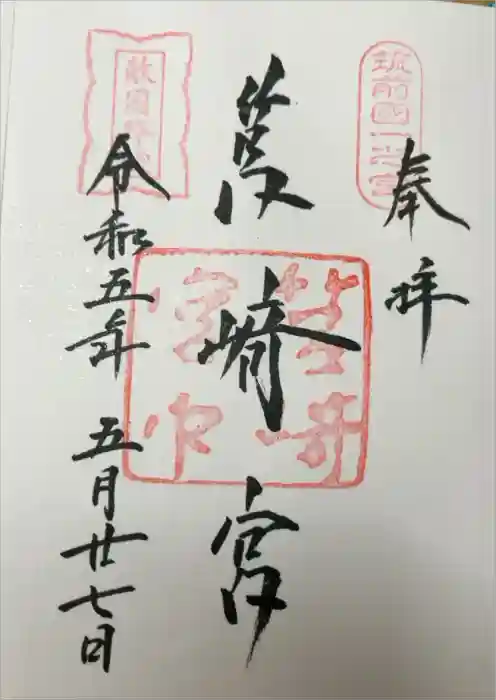 奉拝
筑前国一之宮
筥崎宮
敵国降伏
令和五年 五月廿七日